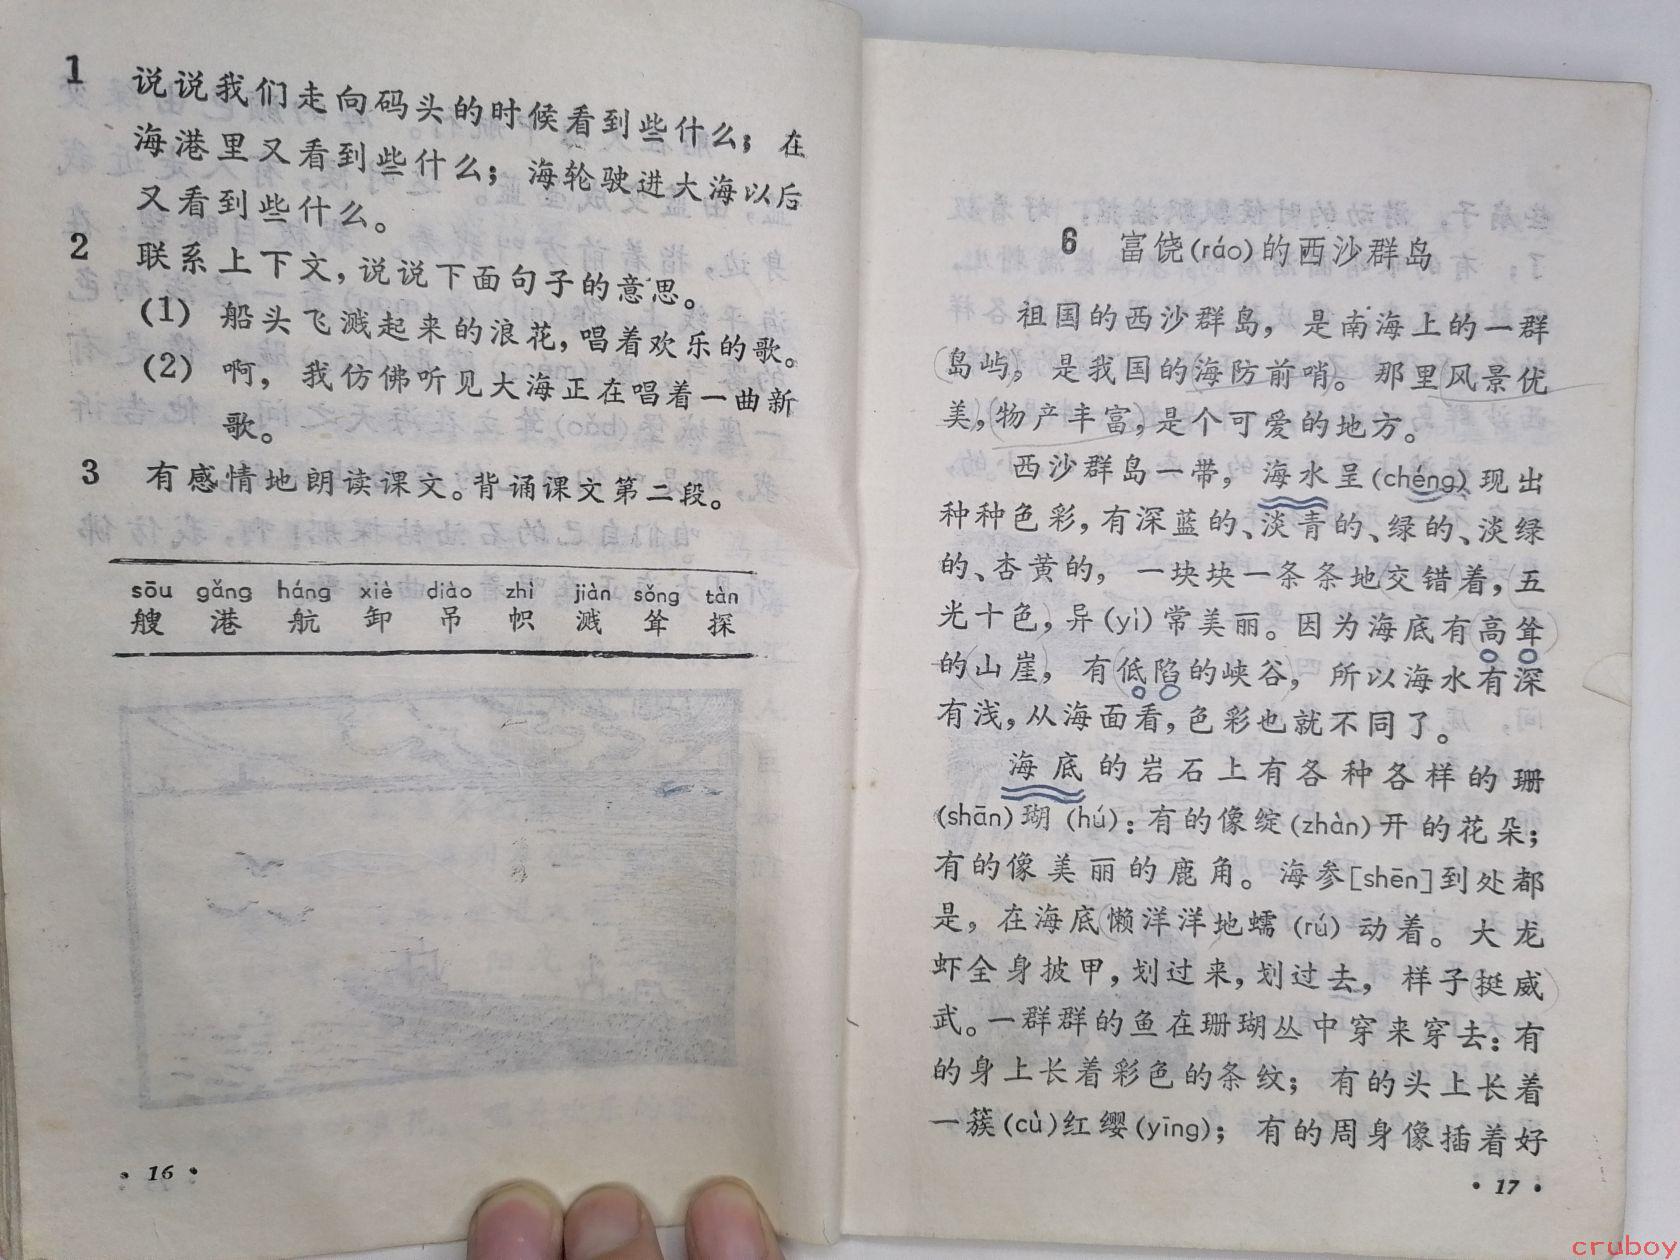 1 说说我们走向码头的时候看到些什么；在
海港里又看到些什么；海轮驶进大海以后
又看到些什么。
2 联系上下文，说说下面句子的意思。
(1) 船头飞溅起来的浪花，唱着欢乐的歌。
(2) 啊，我仿佛听见大海正在唱着一曲新
歌。
3 有感情地朗读课文。背诵课文第二段。
sōu gǎng háng xiè diào zhì jiàn sǒng tàn
艘 港 航 卸 吊 帜 溅 耸 探
· 16 ·
6 富饶(ráo)的西沙群岛
祖国的西沙群岛，是南海上的一群
岛屿，是我国的海防前哨。那里风景优
美，物产丰富，是个可爱的地方。
西沙群岛一带，海水呈(chéng)现出
种种色彩，有深蓝的、淡青的、绿的、淡绿
的、杏黄的，一块块一条条地交错着，五
光十色，异(yì)常美丽。因为海底有高耸
的山崖，有低陷的峡谷，所以海水有深
有浅，从海面看，色彩也就不同了。
海底的岩石上有各种各样的珊
(shān)瑚(hú)：有的像绽(zhàn)开的花朵；
有的像美丽的鹿角。海参[shēn]到处都
是，在海底懒洋洋地蠕(rú)动着。大龙
虾全身披甲，划过来，划过去，样子挺威
武。一群群的鱼在珊瑚丛中穿来穿去：有
的身上长着彩色的条纹；有的头上长着
一簇(cù)红缨(yīng)；有的周身像插着好
· 17 ·
cruboy